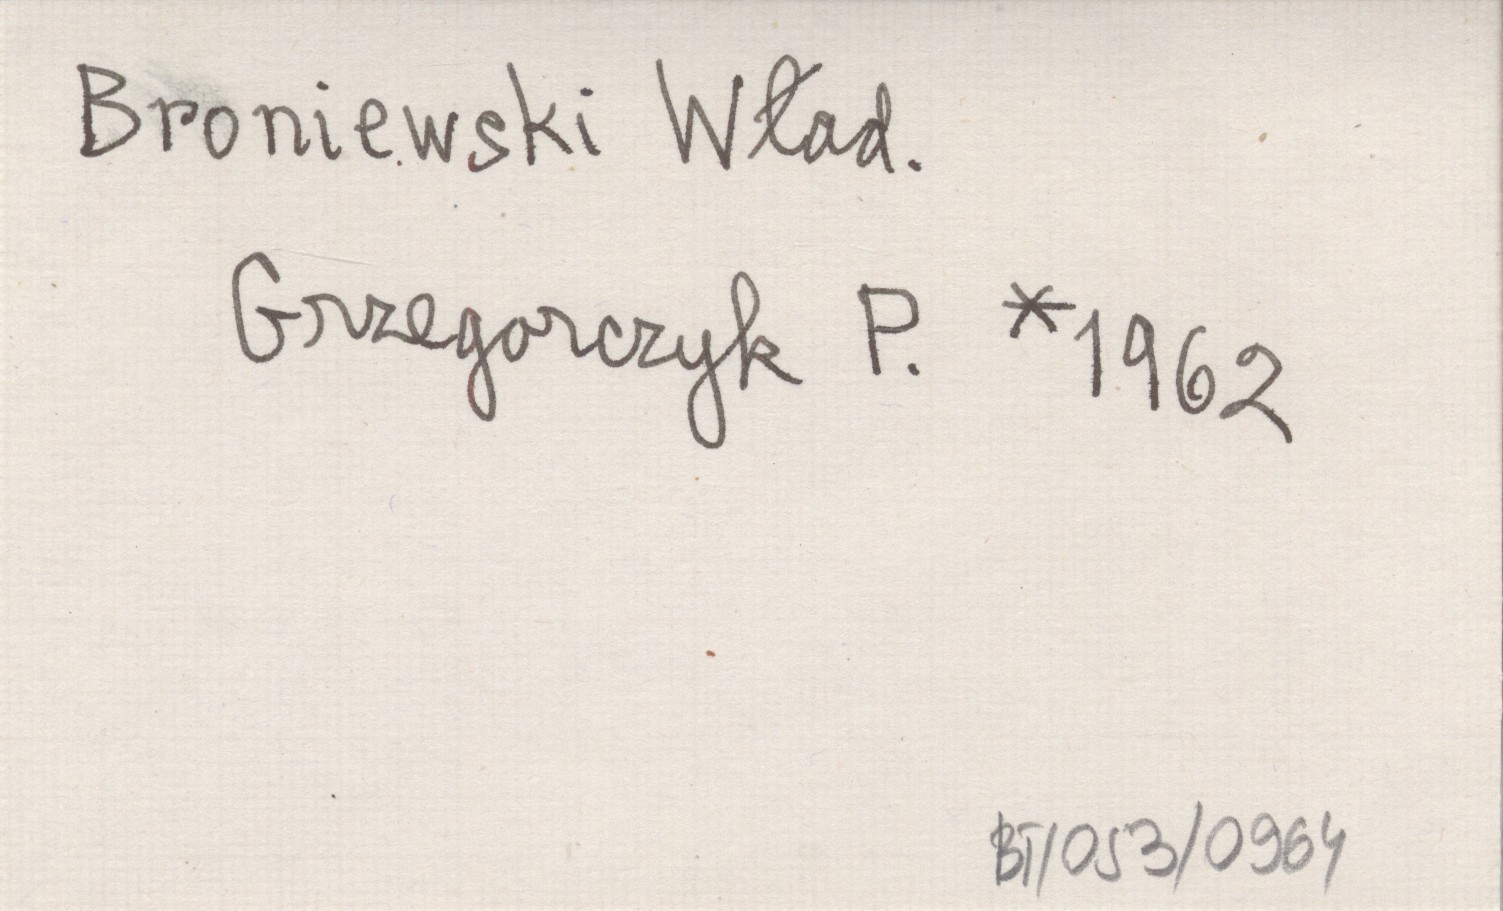 Broniewski Wład.
Grzegorczyk P. *1962
BT/053/0964